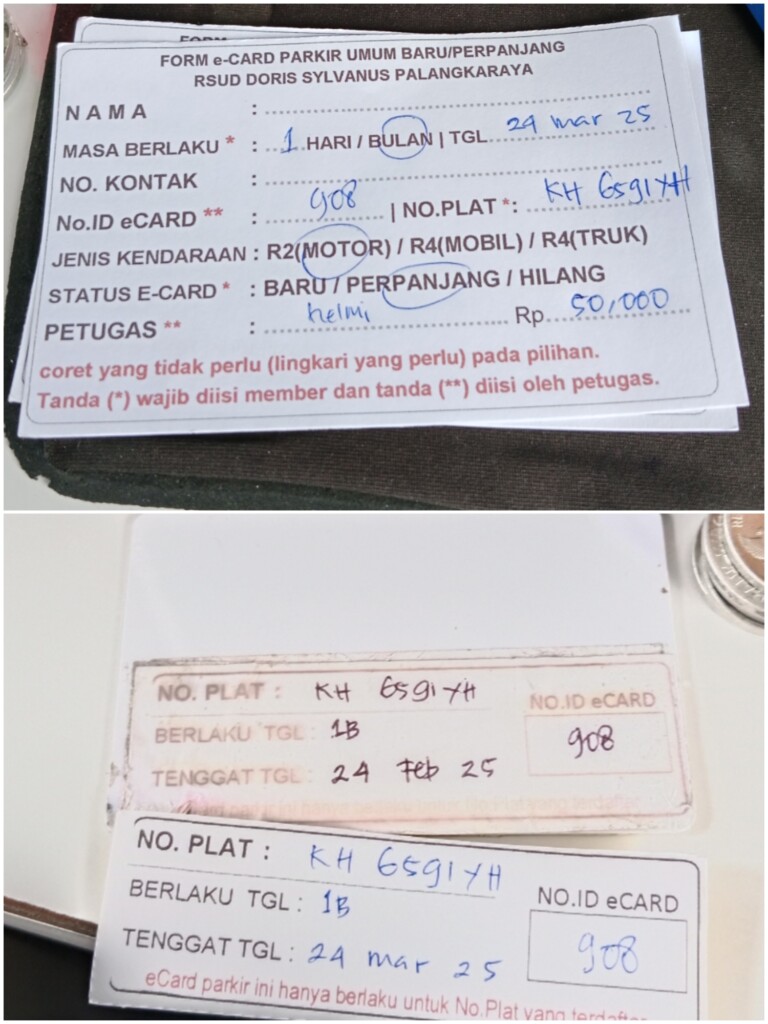 FORM e-CARD PARKIR UMUM BARU/PERPANJANG
RSUD DORIS SYLVANUS PALANGKARAYA
NAMA :
MASA BERLAKU * : 1 HARI / BULAN | TGL 24 mar 25
NO. KONTAK :
No.ID eCARD ** : 908 | NO.PLAT *: KH 6591YH
JENIS KENDARAAN : R2(MOTOR) / R4(MOBIL) / R4(TRUK)
STATUS E-CARD * : BARU / PERPANJANG / HILANG
PETUGAS ** : helmi Rp. 50,000
coret yang tidak perlu (lingkari yang perlu) pada pilihan.
Tanda (*) wajib diisi member dan tanda (**) diisi oleh petugas.
NO. PLAT : KH 6591YH
NO.ID eCARD
BERLAKU TGL : 1B
908
TENGGAT TGL : 24 Feb 25
NO. PLAT : KH 6591YH
NO.ID eCARD
BERLAKU TGL : 1B
908
TENGGAT TGL : 24 mar 25
eCard parkir ini hanya berlaku untuk No.Plat yang